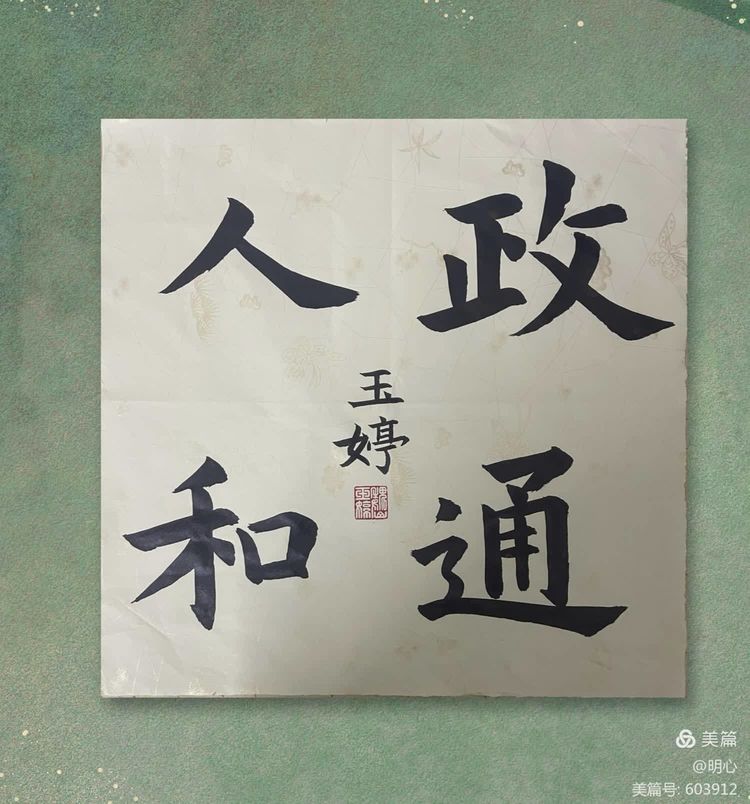 政通
人和
玉婷
美篇
@明心
美篇号: 603912